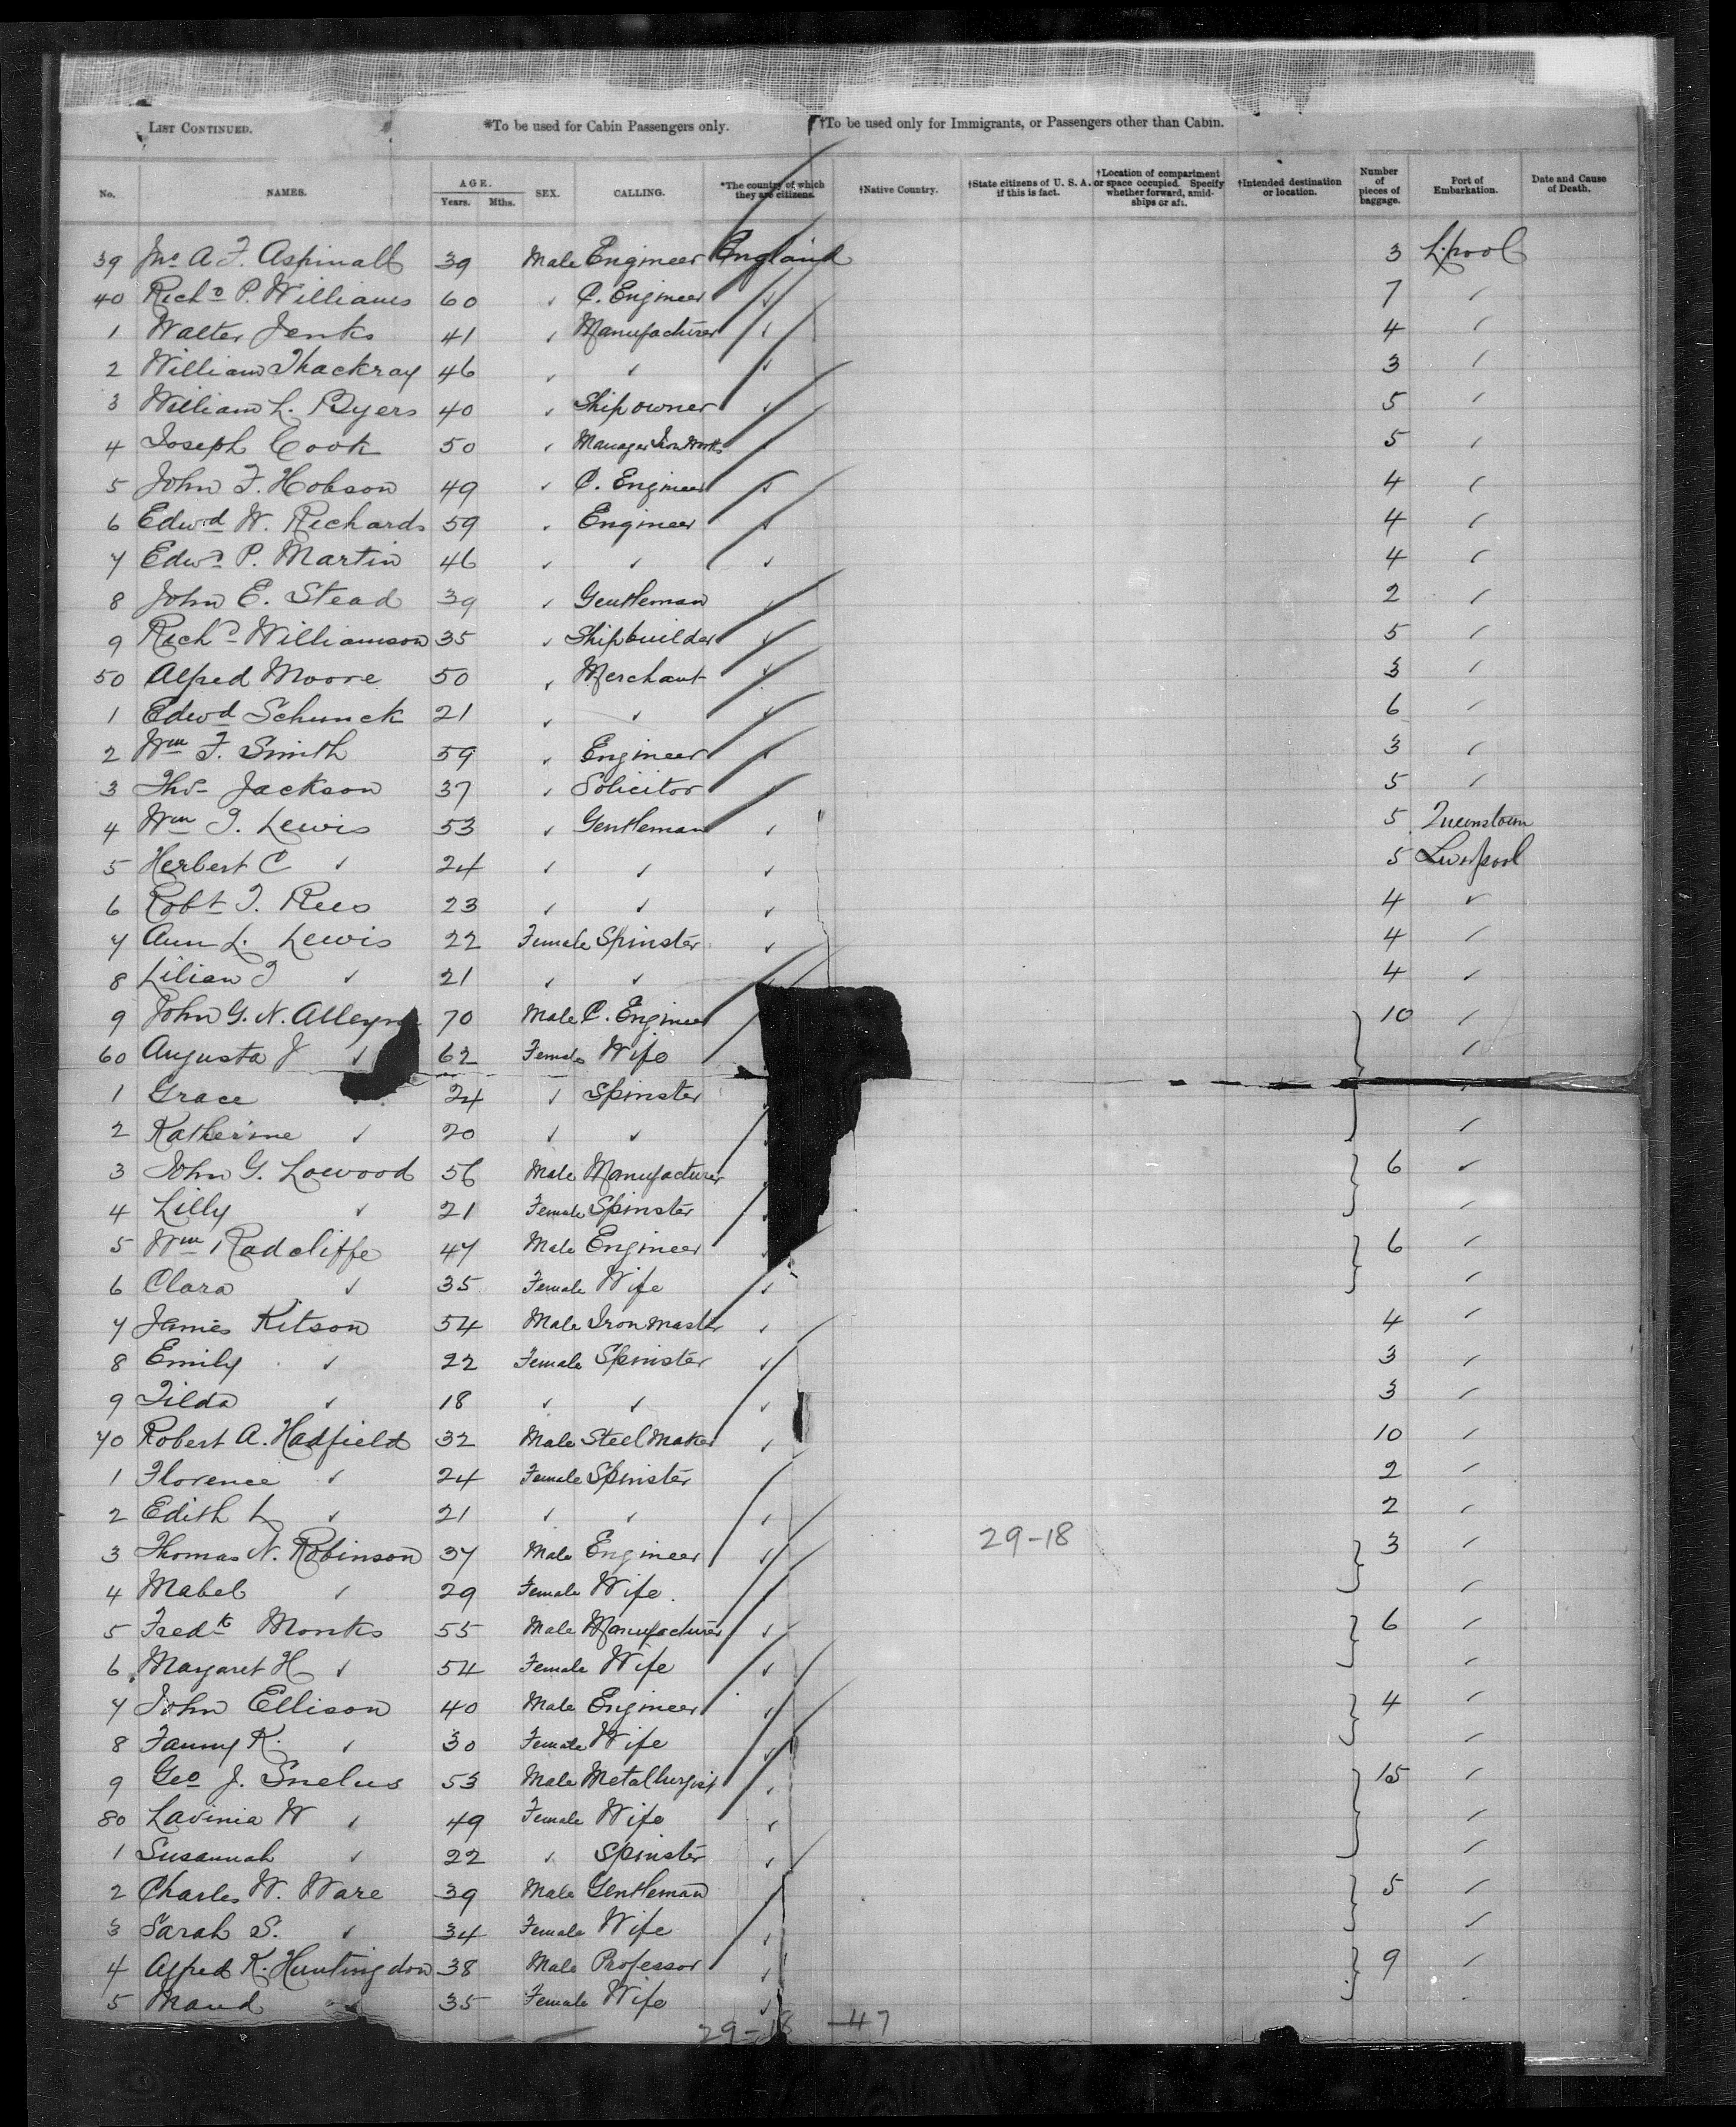 LIST CONTINUED. *To be used for Cabin Passengers only. †To be used only for Immigrants, or Passengers other than Cabin.
No. NAMES. AGE. Years. Mths. SEX. CALLING. *The country of which they are citizens. †Native Country. †State citizens of U. S. A. if this is fact. †Location of compartment or space occupied. Specify whether forward, amidships or aft. †Intended destination or location. Number of pieces of baggage. Port of Embarkation. Date and Cause of Death.
39 Jno A F. Aspinall 39 Male Engineer England 3 L.pool
40 Richd P. Williams 60 ✓ C. Engineer ✓ 7 ✓
1 Walter Jenks 41 ✓ Manufacturer ✓ 4 ✓
2 William Thackray 46 ✓ ✓ ✓ 3 ✓
3 William L. Byers 40 ✓ Ship owner ✓ 5 ✓
4 Joseph Cook 50 ✓ Manager Iron Works ✓ 5 ✓
5 John F. Hobson 49 ✓ C. Engineer ✓ 4 ✓
6 Edwd W. Richards 59 ✓ Engineer ✓ 4 ✓
7 Edwd P. Martin 46 ✓ ✓ ✓ 4 ✓
8 John E. Stead 39 ✓ Gentleman ✓ 2 ✓
9 Richd Williamson 35 ✓ Shipbuilder ✓ 5 ✓
50 Alfred Moore 50 ✓ Merchant ✓ 3 ✓
1 Edwd Schunck 21 ✓ ✓ ✓ 6 ✓
2 Wm F. Smith 59 ✓ Engineer ✓ 3 ✓
3 Thos Jackson 37 ✓ Solicitor 5 ✓
4 Wm T. Lewis 53 ✓ Gentleman ✓ 5 Queenstown
5 Herbert C ✓ 24 ✓ ✓ ✓ 5 Liverpool
6 Robt T. Rees 23 ✓ ✓ ✓ 4 ✓
7 Ann L. Lewis 22 Female Spinster ✓ 4 ✓
8 Lilian T ✓ 21 ✓ ✓ ✓ 4 ✓
9 John G. N. Alleyne 70 Male C. Engineer 10 ✓
60 Augusta J ✓ 62 Female Wife ✓
1 Grace 24 ✓ Spinster ✓
2 Katherine ✓ 20 ✓ ✓ ✓
3 John G. Lowood 56 Male Manufacturer 6 ✓
4 Lilly ✓ 21 Female Spinster ✓
5 Wm Radcliffe 47 Male Engineer 6 ✓
6 Clara ✓ 35 Female Wife ✓ ✓
7 James Kitson 54 Male Iron master ✓ 4 ✓
8 Emily ✓ 22 Female Spinster ✓ 3 ✓
9 Hilda ✓ 18 ✓ ✓ ✓ 3 ✓
70 Robert A. Hadfield 32 Male Steel Maker ✓ 10 ✓
1 Florence ✓ 24 Female Spinster 2 ✓
2 Edith L ✓ 21 ✓ ✓ ✓ 2 ✓
29-18
3 Thomas N. Robinson 37 Male Engineer ✓ 3 ✓
4 Mabel ✓ 29 Female Wife ✓
5 Fredk Monks 55 Male Manufacturer ✓ 6 ✓
6 Margaret H ✓ 54 Female Wife ✓ ✓
7 John Ellison 40 Male Engineer ✓ 4 ✓
8 Fanny K. ✓ 30 Female Wife ✓ ✓
9 Geo J. Snelus 53 Male Metallurgist ✓ 15 ✓
80 Lavinia W ✓ 49 Female Wife ✓ ✓
1 Susannah ✓ 22 ✓ Spinster ✓ ✓
2 Charles W. Ware 39 Male Gentleman 5 ✓
3 Sarah S. ✓ 34 Female Wife ✓ ✓
4 Alfred K. Huntingdon 38 Male Professor ✓ 9 ✓
5 Maud 35 Female Wife ✓
29-18 -47